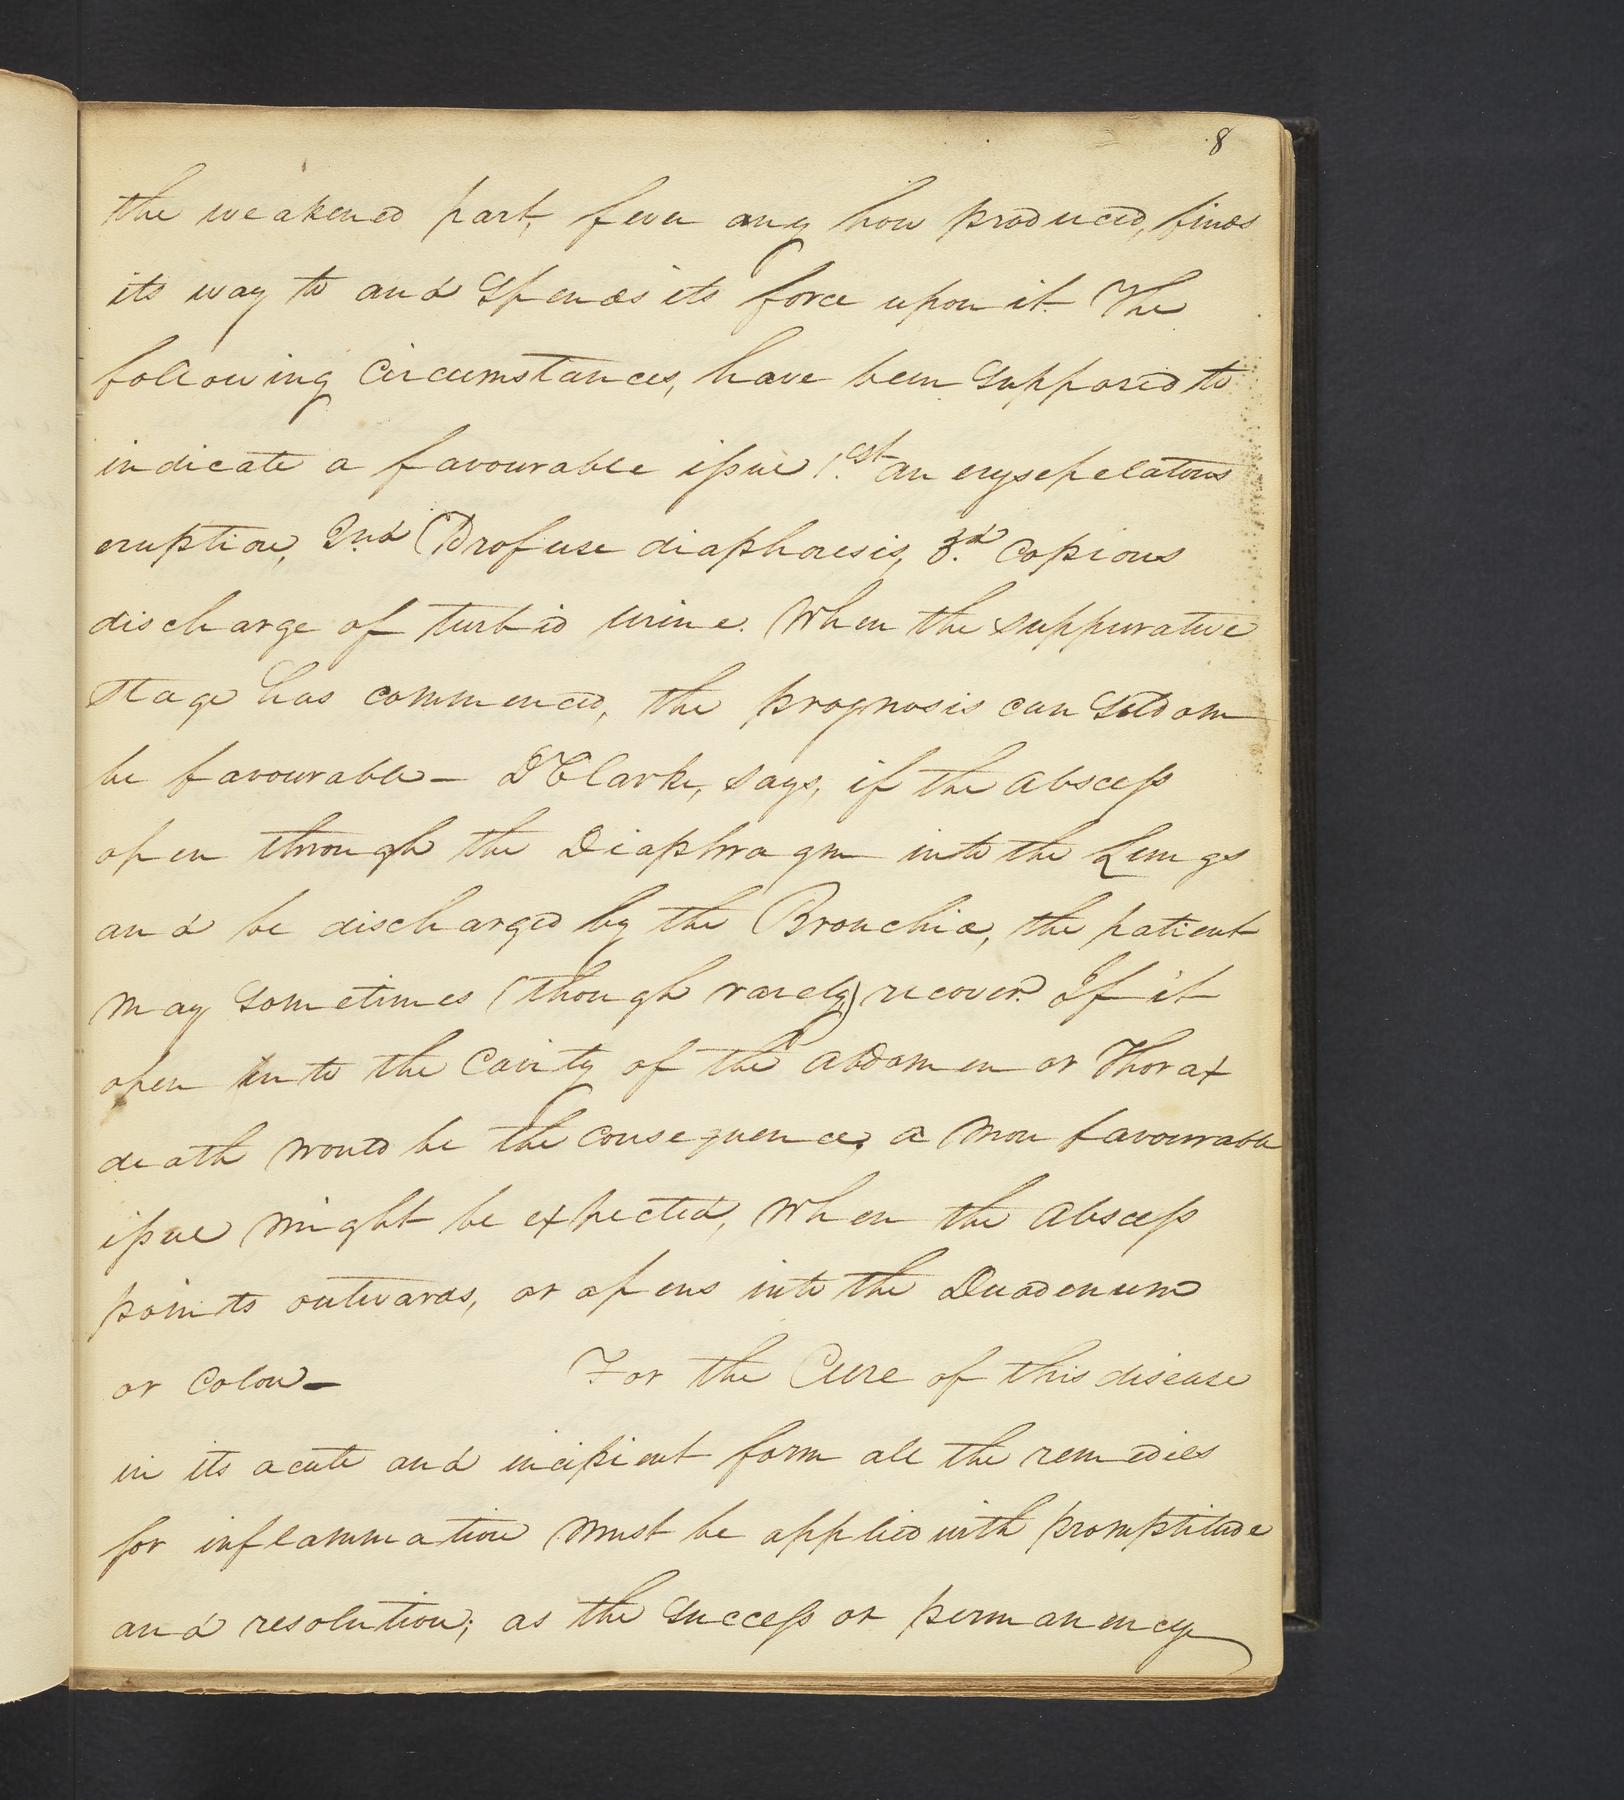 8
the weakened part, fever any how produced, finds
its way to and Spends its force upon it. The
following Circumstances, have been Supposed to
indicate a favourable issue 1.est an erysepelatous
eruption, 2nd Profuse diaphoresis, 3.d Copious
discharge of turbid urine. When the suppurative
Stage has commenced, the prognosis can Seldom
be favourable - Dr Clark, says, if the Abscess
open through the Diaphragm into the Lungs
and be discharged by the Bronchia, the patient
may Sometimes (though rarely) recover. If it
open into the Cavity of the abdomen or Thorax
death would be the consequence, a more favourable
issue might be expected, when the Abscess
points outwards, or opens into the Duodenum
or Colon - For the Cure of this disease
in its acute and incipient form all the remedies
for inflammation must be applied with promptitude
and resolution; as the Success or permanency